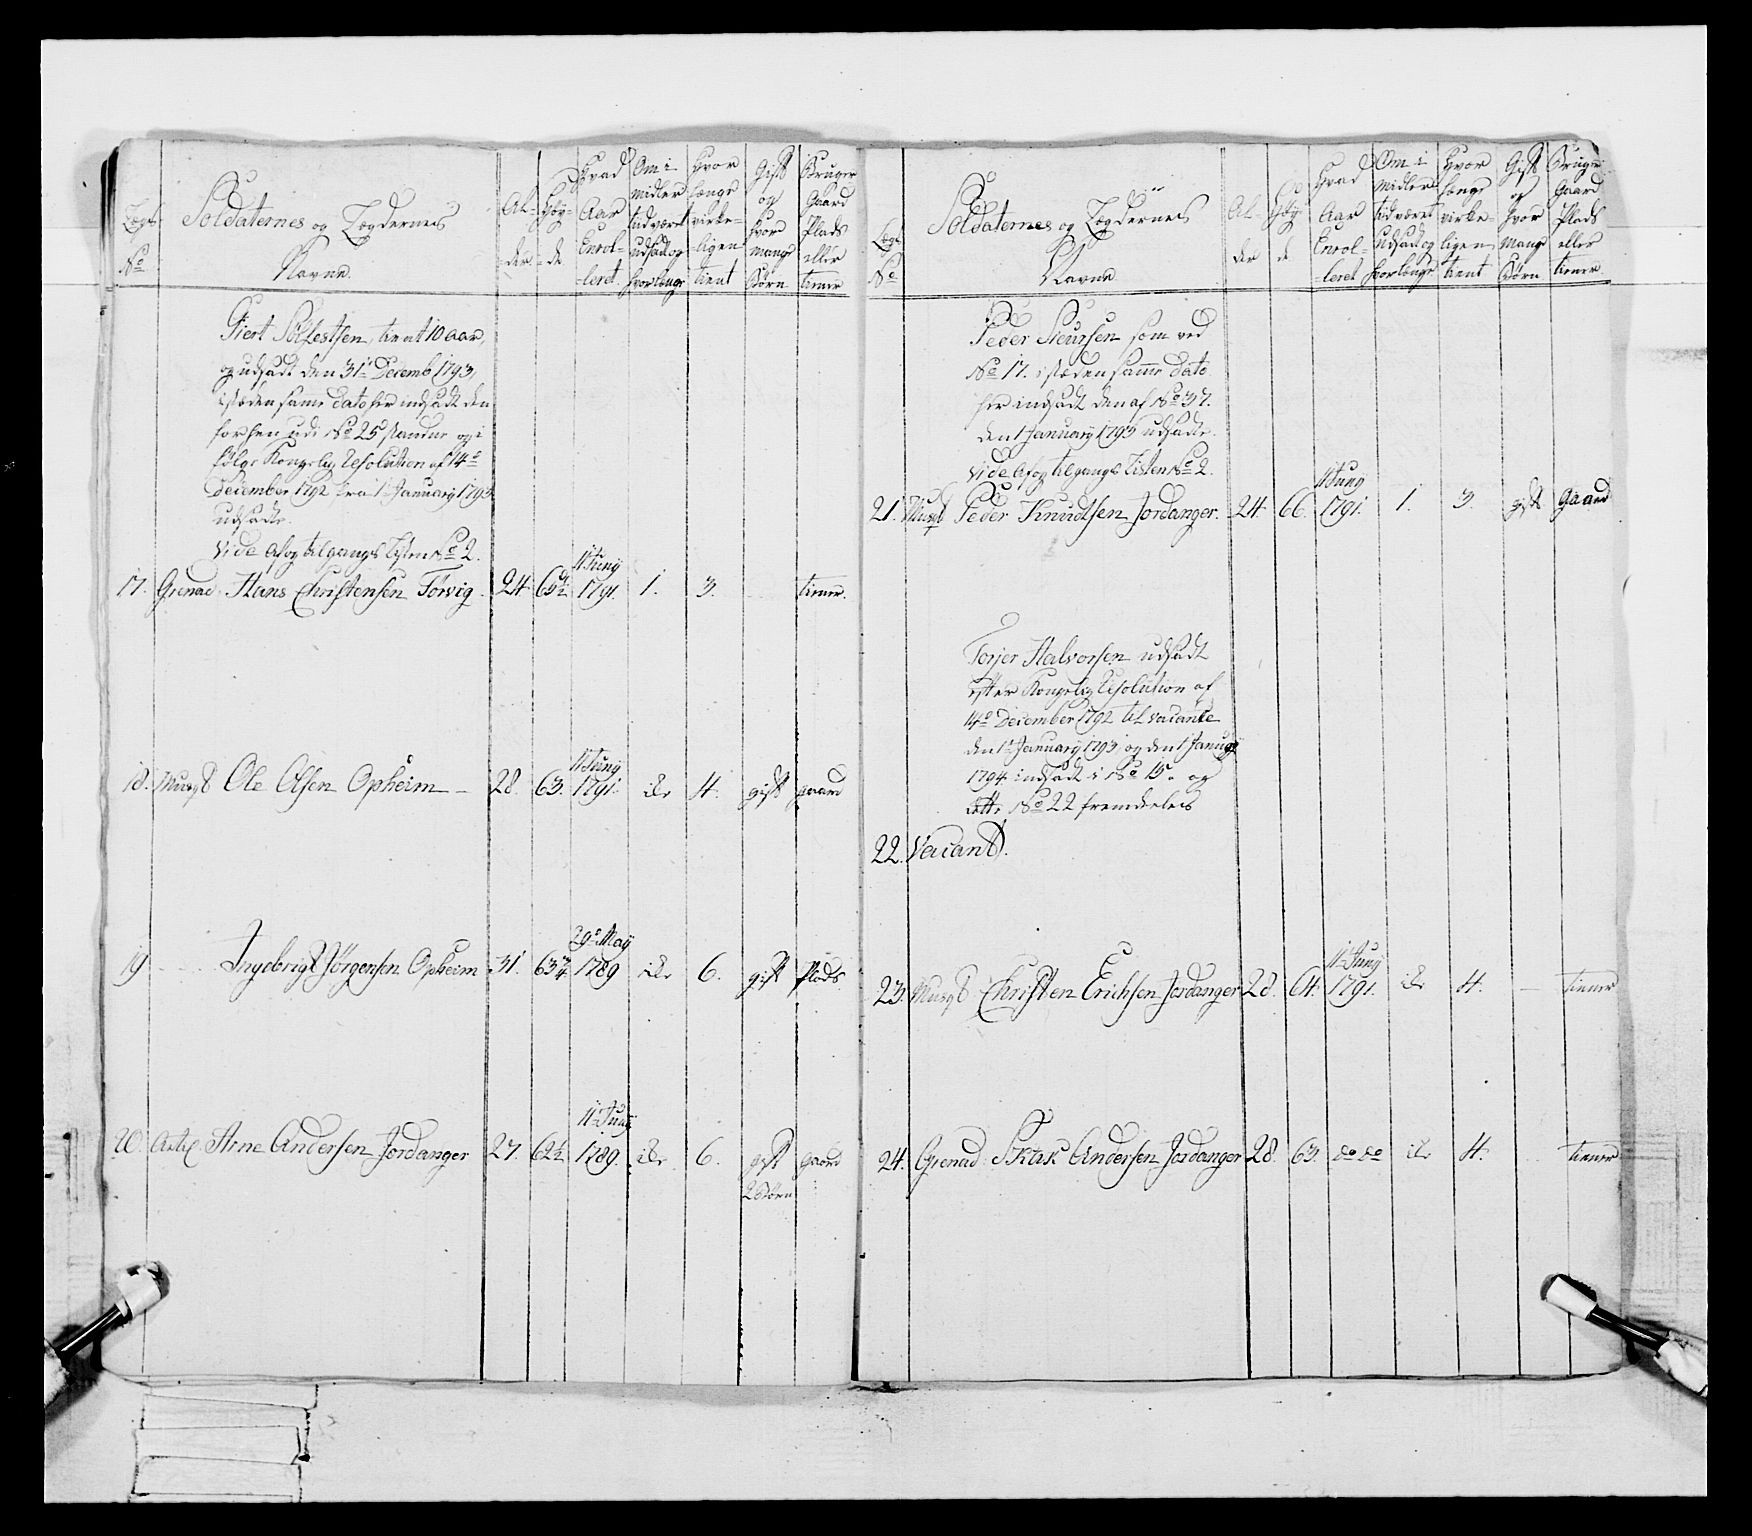 Lægs No
Soldaternes og Lægdernes Navne
Al-der
Höy-de
Hvad Aar Enrol-leret
Om i midler tid været udsadt og hvorlenge
Hvor længe virke-ligen tient
Gift og hvor mange Börn
Bruger Gaard Plads eller tiener
Giert Solfestsen, tient 10 aar,
og udsadt den 31te Decemb 1793,
i stæden samme dato her indsadt den
forhen udi No 25 standne og i
følge Kongelig Resolution af 14de
December 1792 fra 1te January 1793
udsadte.
Vide Af og tilgangs Listen No 2.
17. Grenad Hans Christensen Törvig. 24 65½ 11 Juny 1791. 1. 3. tiener.
18. Musqt Ole Olsen Opheim 28. 63. 11 Juny 1791. ide 4. gift gaard
19 Ingebrigt Jörgensen Opheim 31. 63¾ 29de May 1789 ide 6. gift Plads
20. Arne Andersen Jordanger 27. 62½ 11 Juny 1789. ide 6. gift gaard
2 Börn
Lægs No
Soldaternes og Lægdernes Navne
Al-der
Höy-de
Hvad Aar Enrol-leret
Om i midler tid været udsad og hvorlænge
Hvor længe virke-ligen tient
Gift og hvor mange Börn
Bruger Gaard Plads eller tiener
Peder Siursen som ved
No 17. i stæden samme dato
her indsadt den af No 37.
den 1 January 1793 udsadte.
Vide Af og tilgangs Listen No 2.
21. Musqt Peder Knudtsen Jordanger. 24. 66. 11 Juny 1791. 1. 3. gift Gaard
Torjer Halvorsen udsadt
efter Kongelig Resolution af
14de December 1792 til vacante
den 1te January 1793, og den 1 Janury
1794 indsadt i No 15. og
dette No 22 fremdeeles
22. Vacant.
23. Musqt Christen Erichsen Jordanger 28. 64. 11 Juny 1791. ide 4. tiener
24. Grenad Skak Andersen Jordanger 28. 63. do do ide 4. tiener